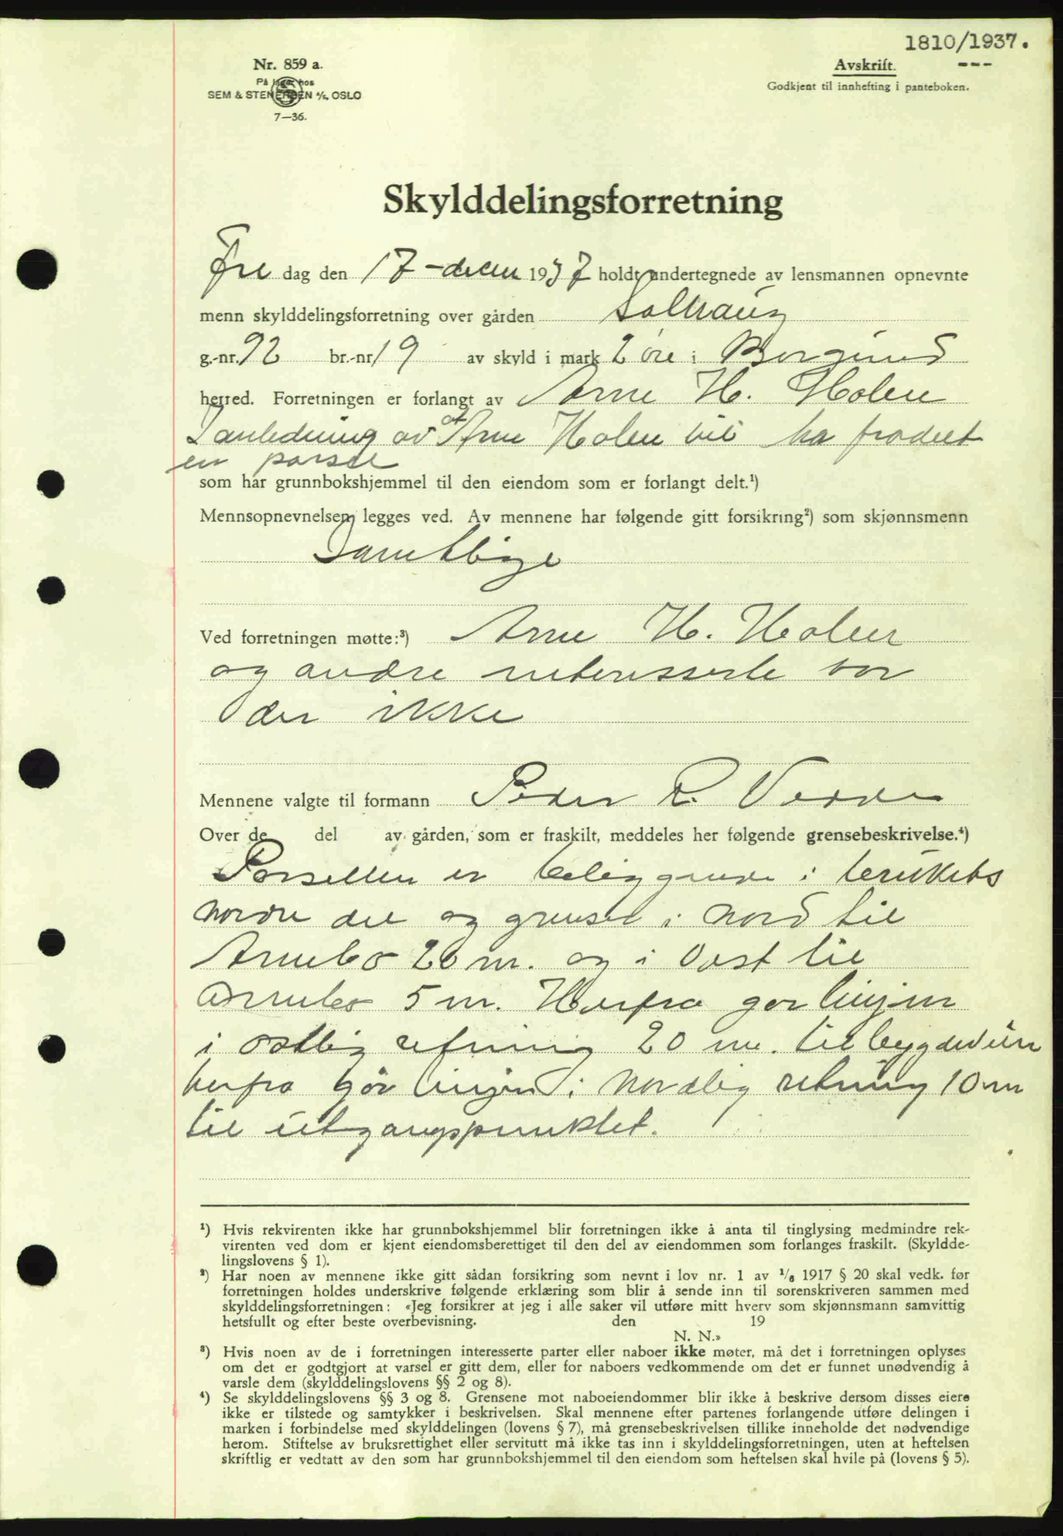 1810/1937.
Nr. 859 a.
På lager hos
SEM & STENERSEN A/S, OSLO
7—36.
Avskrift.
Godkjent til innhefting i panteboken.
Skylddelingsforretning
Fre dag den 17 - decem 1937 holdt undertegnede av lensmannen opnevnte
menn skylddelingsforretning over gården Solhaug
g.-nr. 92 br.-nr. 19 av skyld i mark 2 øre i Borgund
herred. Forretningen er forlangt av Arne H. Holen
I anledning av at Arne Holen vil ha fradelt
en parsel
som har grunnbokshjemmel til den eiendom som er forlangt delt.¹)
Mennsopnevnelsen legges ved. Av mennene har følgende gitt forsikring²) som skjønnsmenn
Samtlige
Ved forretningen møtte:³) Arne H. Holen
og andre interesserte var
der ikke
Mennene valgte til formann Peder R.
Over de del av gården, som er fraskilt, meddeles her følgende grensebeskrivelse.⁴)
Parsellen er beliggende i brukets
nordre del og grenser i nord til
Arnebo 20 m. og i Vest til
Arnebo 5 m. Herfra gor linjen
i ostlig retning 20 m. til bygdeveien
herfra gor linjen i nordlig retning 10 m
til utgangspunktet.
¹) Hvis rekvirenten ikke har grunnbokshjemmel blir forretningen ikke å anta til tinglysing medmindre rek-
virenten ved dom er kjent eiendomsberettiget til den del av eiendommen som forlanges fraskilt. (Skyldde-
lingslovens § 1).
²) Har noen av mennene ikke gitt sådan forsikring som nevnt i lov nr. 1 av ¹/₆ 1917 § 20 skal vedk. før
forretningen holdes underskrive følgende erklæring som blir å sende inn til sorenskriveren sammen med
skylddelingsforretningen: «Jeg forsikrer at jeg i alle saker vil utføre mitt hverv som skjønnsmann samvittig
hetsfullt og efter beste overbevisning. den 19
N. N.»
³) Hvis noen av de i forretningen interesserte parter eller naboer ikke møter, må det i forretningen oplyses
om det er godtgjort at varsel er gitt dem, eller for naboers vedkommende om det er funnet unødvendig å
varsle dem (skylddelingslovens §§ 2 og 8).
⁴) Se skylddelingslovens §§ 3 og 8. Grensene mot naboeiendommer blir ikke å beskrive dersom disses eiere
ikke er tilstede og samtykker i beskrivelsen. Skal mennene efter partenes forlangende utføre delingen i
marken i forbindelse med skylddelingen (lovens § 7), må grensebeskrivelsen tillike inneholde det nødvendige
herom. Stiftelse av bruksrettighet eller servitutt må ikke tas inn i skylddelingsforretningen, uten at heftelsen
skriftlig er vedtatt av den som har grunnbokshjemmel til den eiendom som heftelsen skal hvile på (lovens § 5).